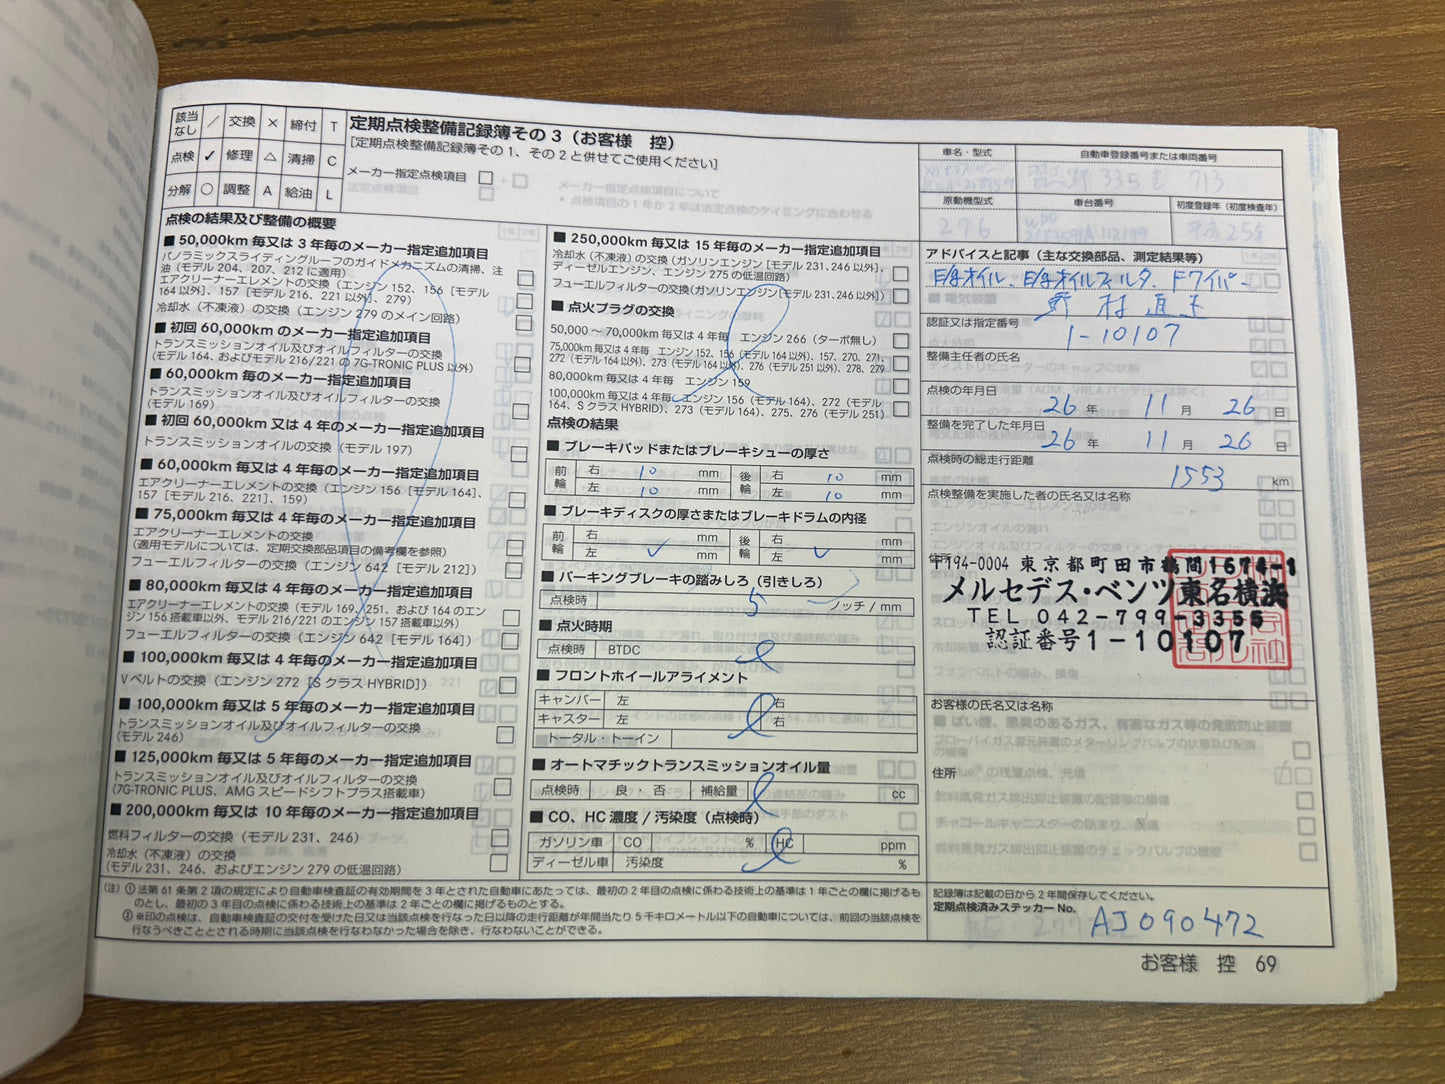 該当なし ／ 交換 × 締付 T
点検 ✓ 修理 △ 清掃 C
分解 ○ 調整 A 給油 L
定期点検整備記録簿その3（お客様 控）
[定期点検整備記録簿その1、その2と併せてご使用ください]
メーカー指定点検項目 □
点検の結果及び整備の概要
■ 50,000km 毎又は 3 年毎のメーカー指定追加項目
パノラミックスライディングルーフのガイドメカニズムの清掃、注
油（モデル 204、207、212 に適用）
エアクリーナーエレメントの交換（エンジン 152、156［モデル
164以外］、157［モデル 216、221 以外］、279）
冷却水（不凍液）の交換（エンジン 279 のメイン回路）
■ 初回 60,000km のメーカー指定追加項目
トランスミッションオイル及びオイルフィルターの交換
（モデル 164、およびモデル 216/221 の 7G-TRONIC PLUS 以外）
■ 60,000km 毎のメーカー指定追加項目
トランスミッションオイル及びオイルフィルターの交換
（モデル 169）
■ 初回 60,000km 又は 4 年毎のメーカー指定追加項目
トランスミッションオイルの交換（モデル 197）
■ 60,000km 毎又は 4 年毎のメーカー指定追加項目
エアクリーナーエレメントの交換（エンジン 156［モデル 164］、
157［モデル 216、221］、159）
■ 75,000km 毎又は 4 年毎のメーカー指定追加項目
エアクリーナーエレメントの交換
（適用モデルについては、定期交換部品項目の備考欄を参照）
フューエルフィルターの交換（エンジン 642［モデル 212］）
■ 80,000km 毎又は 4 年毎のメーカー指定追加項目
エアクリーナーエレメントの交換（モデル 169、251、および 164 のエン
ジン 156 搭載車以外、モデル 216/221 のエンジン 157 搭載車以外）
フューエルフィルターの交換（エンジン 642［モデル 164］）
■ 100,000km 毎又は 4 年毎のメーカー指定追加項目
Vベルトの交換（エンジン 272［S クラス HYBRID］）
■ 100,000km 毎又は 5 年毎のメーカー指定追加項目
トランスミッションオイル及びオイルフィルターの交換
（モデル 246）
■ 125,000km 毎又は 5 年毎のメーカー指定追加項目
トランスミッションオイル及びオイルフィルターの交換
（7G-TRONIC PLUS、AMG スピードシフトプラス搭載車）
■ 200,000km 毎又は 10 年毎のメーカー指定追加項目
燃料フィルターの交換（モデル 231、246）
冷却水（不凍液）の交換
（モデル 231、246、およびエンジン 279 の低温回路）
■ 250,000km 毎又は 15 年毎のメーカー指定追加項目
冷却水（不凍液）の交換（ガソリンエンジン［モデル 231、246 以外］、
ディーゼルエンジン、エンジン 275 の低温回路）
フューエルフィルターの交換（ガソリンエンジン［モデル 231、246 以外］）
■ 点火プラグの交換
50,000 ～ 70,000km 毎又は 4 年毎 エンジン 266（ターボ無し）
75,000km 毎又は 4 年毎 エンジン 152、156（モデル 164 以外）、157、270、271、
272（モデル 164 以外）、273（モデル 164 以外）、276（モデル 251 以外）、278、279
80,000km 毎又は 4 年毎 エンジン 159
100,000km 毎又は 4 年毎 エンジン 156（モデル 164）、272（モデル
164、S クラス HYBRID）、273（モデル 164）、275、276（モデル 251）
点検の結果
■ ブレーキパッドまたはブレーキシューの厚さ
前輪 右 10 mm 後輪 右 10 mm
左 10 mm 左 10 mm
■ ブレーキディスクの厚さまたはブレーキドラムの内径
前輪 右 mm 後輪 右 mm
左 ✓ mm 左 ✓ mm
■ パーキングブレーキの踏みしろ（引きしろ）
点検時 5 ノッチ / mm
■ 点火時期
点検時 BTDC
■ フロントホイールアライメント
キャンバー 左 右
キャスター 左 右
トータル・トーイン
■ オートマチックトランスミッションオイル量
点検時 良 ・ 否 補給量 cc
■ CO、HC 濃度 / 汚染度（点検時）
ガソリン車 CO % HC ppm
ディーゼル車 汚染度 %
（注）① 法第 61 条第 2 項の規定により自動車検査証の有効期間を 3 年とされた自動車にあたっては、最初の 2 年目の点検に係わる技術上の基準は 1 年ごとの欄に掲げるも
のとし、最初の 3 年目の点検に係わる技術上の基準は 2 年ごとの欄に掲げるものとする。
② ※印の点検は、自動車検査証の交付を受けた日又は当該点検を行なった日以降の走行距離が年間当たり 5 千キロメートル以下の自動車については、前回の当該点検を
行なうべきこととされる時期に当該点検を行なわなかった場合を除き、行なわないことができる。
車名・型式 自動車登録番号または車両番号
335 713
原動機型式 車台番号 初度登録年（初度検査年）
276 平成25年
アドバイスと記事（主な交換部品、測定結果等）
オイル、オイルフィルタ、Fワイパー
認証又は指定番号 1-10107
整備主任者の氏名
点検の年月日 26 年 11 月 26 日
整備を完了した年月日 26 年 11 月 26 日
点検時の総走行距離 1553 km
点検整備を実施した者の氏名又は名称
住所
〒194-0004 東京都町田市鶴間1674-1
メルセデス・ベンツ東名横浜
TEL 042-799-3355
認証番号1-10107
お客様の氏名又は名称
住所
記録簿は記載の日から 2 年間保存してください。
定期点検済みステッカー No. AJ090472
お客様 控 69